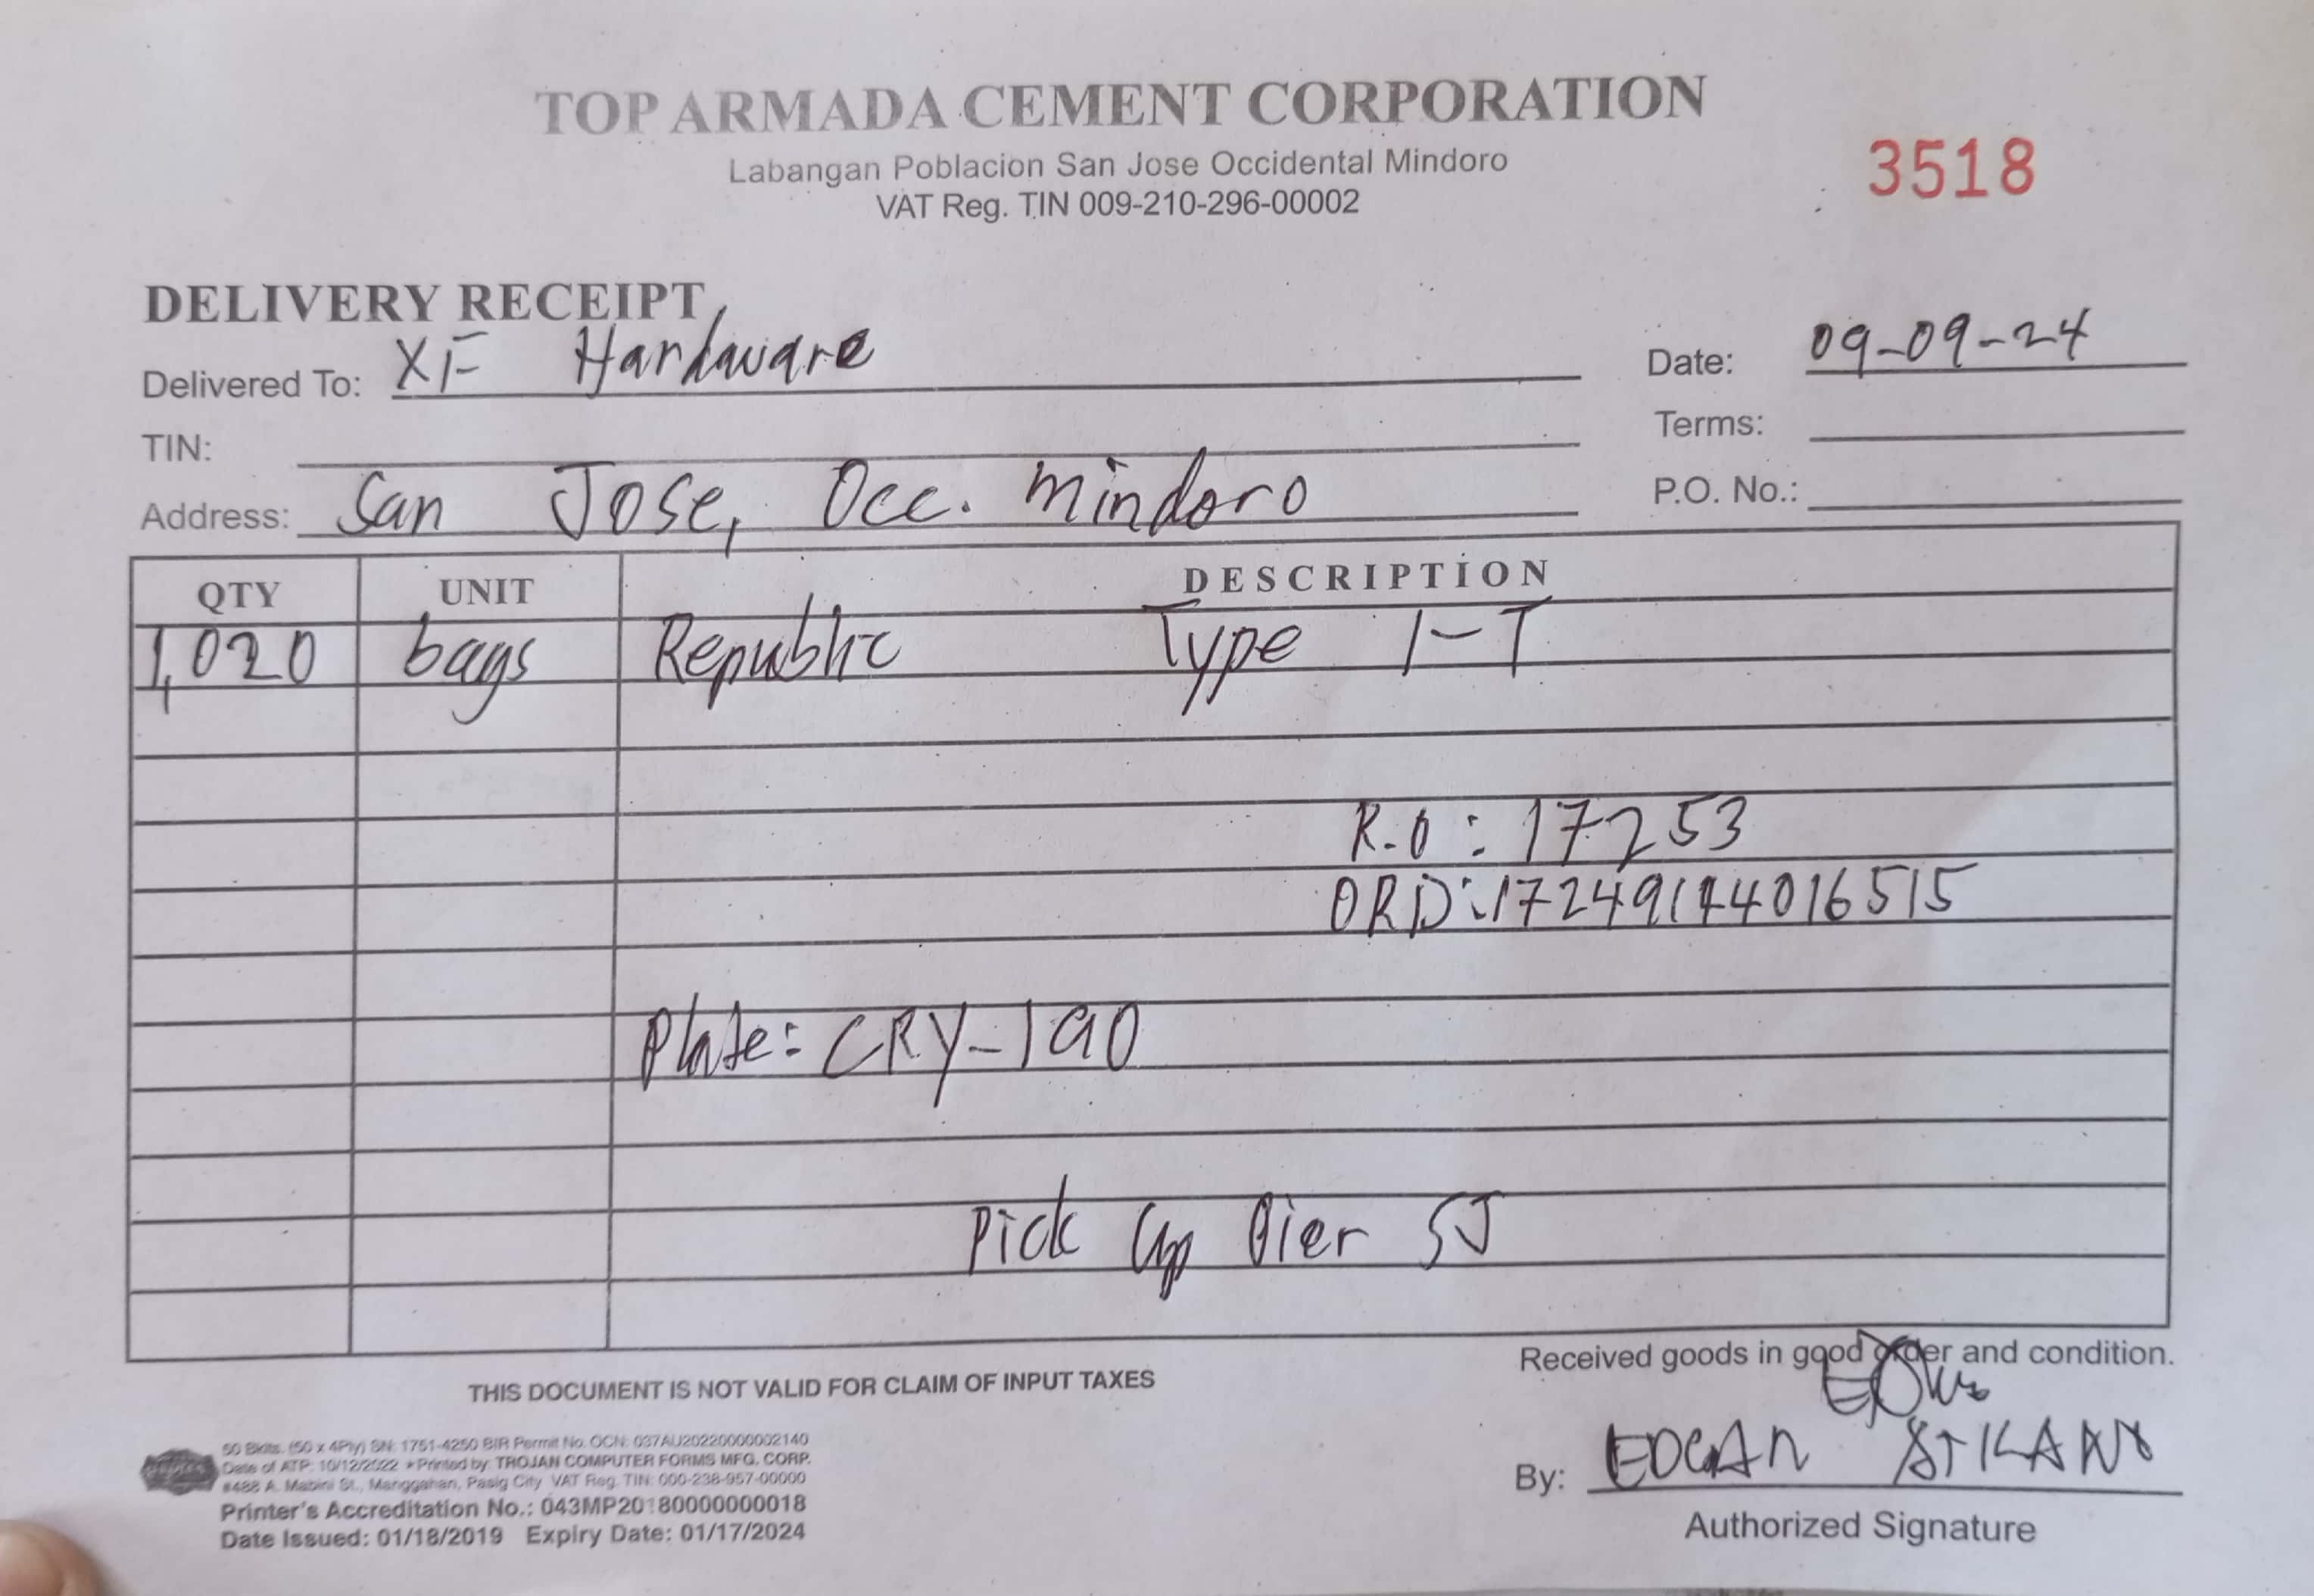 TOP ARMADA CEMENT CORPORATION
Labangan Poblacion San Jose Occidental Mindoro
VAT Reg. TIN 009-210-296-00002
3518
DELIVERY RECEIPT
Delivered To: XF Hardware
Date: 09-09-24
TIN:
Terms:
Address: San Jose, Occ. Mindoro
P.O. No.:
QTY UNIT DESCRIPTION
1,020 bags Republic Type 1-T
R.O: 17253
ORD: 17249144016515
Plate: CRY-190
Pick Up Pier SJ
Received goods in good order and condition.
THIS DOCUMENT IS NOT VALID FOR CLAIM OF INPUT TAXES
50 Bklts. (50 x 4Ply) SN: 1751-4250 BIR Permit No. OCN: 037AU20220000002140
Date of ATP: 10/12/2022 *Printed by: TROJAN COMPUTER FORMS MFG. CORP.
#488 A. Mabini St., Manggahan, Pasig City VAT Reg. TIN: 000-238-957-00000
Printer's Accreditation No.: 043MP20180000000018
Date Issued: 01/18/2019 Expiry Date: 01/17/2024
By: EDGAR
Authorized Signature